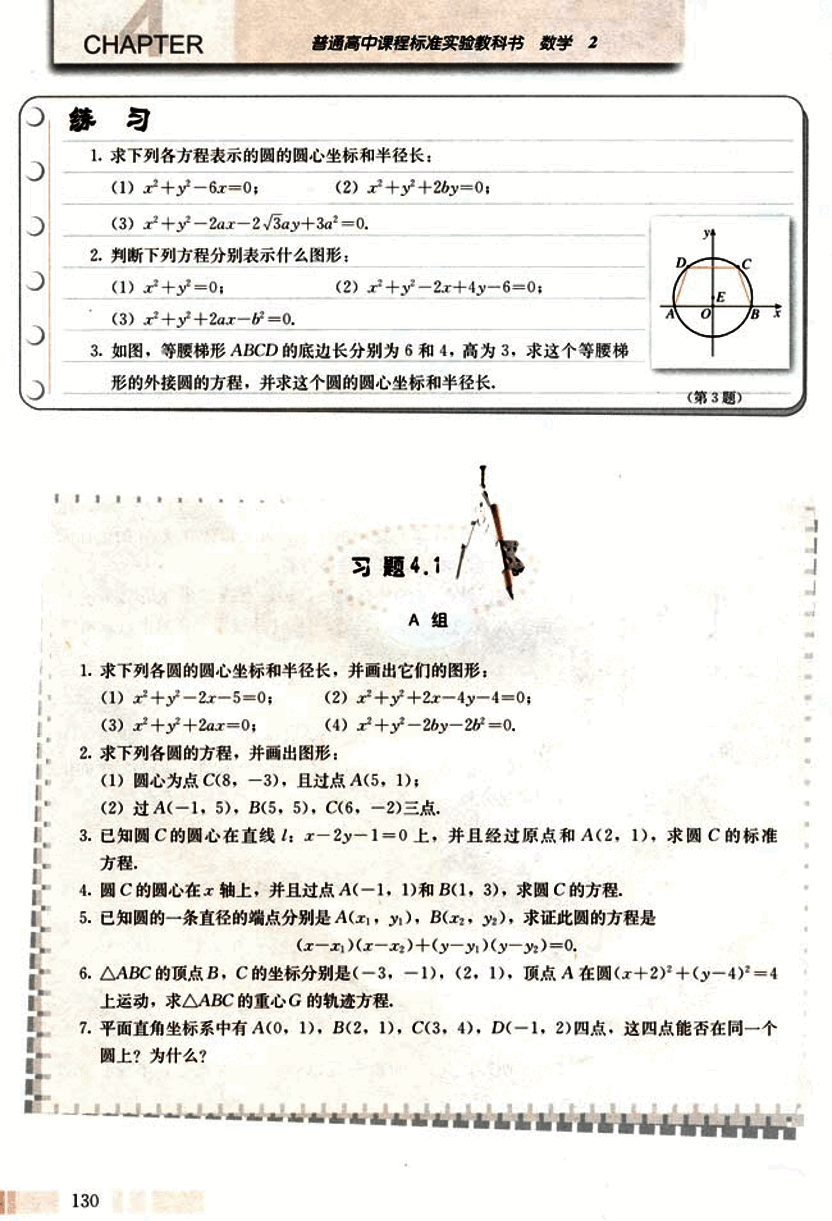 CHAPTER 4
普通高中课程标准实验教科书 数学 2
练 习
1. 求下列各方程表示的圆的圆心坐标和半径长:
(1) x²+y²-6x=0; (2) x²+y²+2by=0;
(3) x²+y²-2ax-2√3ay+3a²=0.
2. 判断下列方程分别表示什么图形:
(1) x²+y²=0; (2) x²+y²-2x+4y-6=0;
(3) x²+y²+2ax-b²=0.
3. 如图，等腰梯形 ABCD 的底边长分别为 6 和 4，高为 3，求这个等腰梯
形的外接圆的方程，并求这个圆的圆心坐标和半径长.
y
D C
E
A O B x
(第 3 题)
习 题 4.1
A 组
1. 求下列各圆的圆心坐标和半径长，并画出它们的图形:
(1) x²+y²-2x-5=0; (2) x²+y²+2x-4y-4=0;
(3) x²+y²+2ax=0; (4) x²+y²-2by-2b²=0.
2. 求下列各圆的方程，并画出图形:
(1) 圆心为点 C(8, -3)，且过点 A(5, 1);
(2) 过 A(-1, 5)，B(5, 5)，C(6, -2)三点.
3. 已知圆 C 的圆心在直线 l: x-2y-1=0 上，并且经过原点和 A(2, 1)，求圆 C 的标准
方程.
4. 圆 C 的圆心在 x 轴上，并且过点 A(-1, 1)和 B(1, 3)，求圆 C 的方程.
5. 已知圆的一条直径的端点分别是 A(x₁, y₁)，B(x₂, y₂)，求证此圆的方程是
(x-x₁)(x-x₂)+(y-y₁)(y-y₂)=0.
6. △ABC 的顶点 B，C 的坐标分别是(-3, -1)，(2, 1)，顶点 A 在圆(x+2)²+(y-4)²=4
上运动，求△ABC 的重心 G 的轨迹方程.
7. 平面直角坐标系中有 A(0, 1)，B(2, 1)，C(3, 4)，D(-1, 2)四点，这四点能否在同一个
圆上？为什么？
130